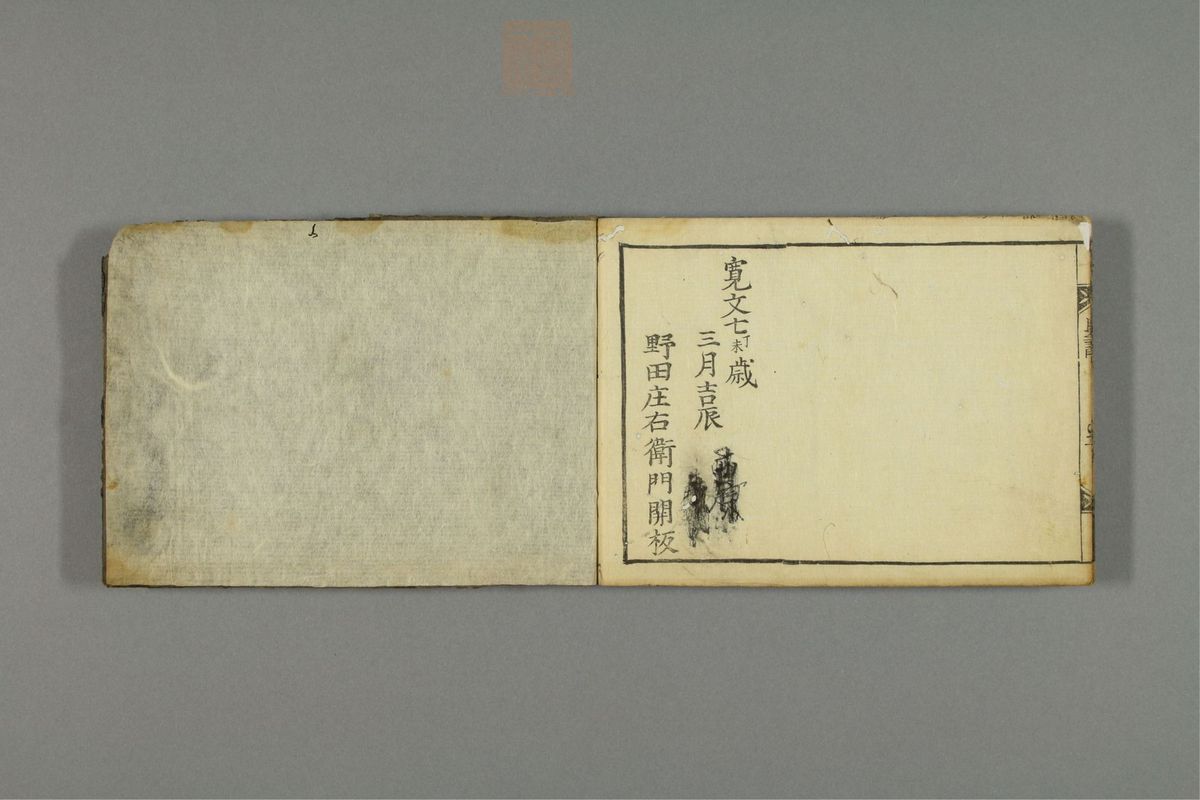 寛文七丁未歳
三月吉辰
野田庄右衛門開板